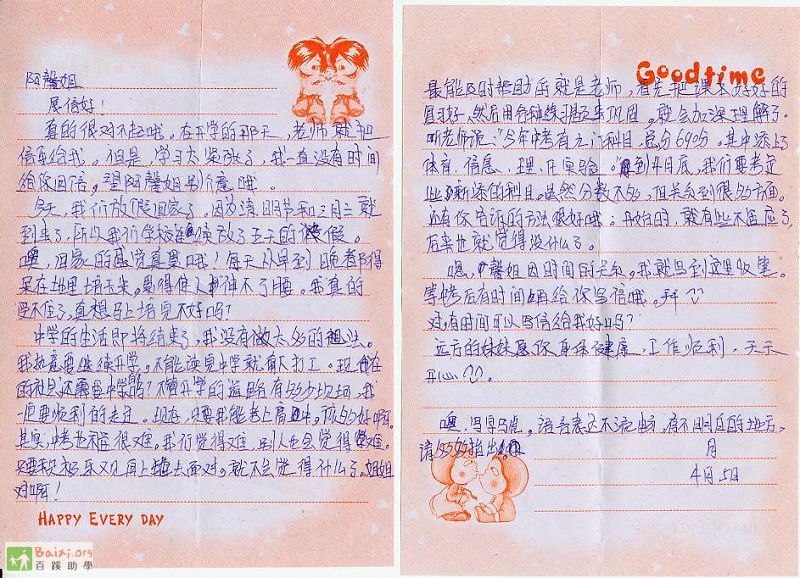 阿馨姐
展信好！
真的很对不起哦。在开学的那天，老师就把
信拿给我。但是，学习太紧张了，我一直没有时间
给你回信，望阿馨姐别介意哦。
今天，我们放假回家了。因为清明节和三月三就
到来了，所以我们学校连续放了五天的假。
噢，回家的感觉真累哦！每天从早到晚都得
呆在地里培玉米，累得使人直不了腰。我真的
受不住了，真想马上培完不好吗？
中学的生活即将结束了，我没有做太多的想法。
我热意要继续升学，不能读完中学就有人打工。现在
的社会还需要中学的？不管升学的道路有多少坎坷，我
一定要顺利的走过。现在，只要我能考上高中，该多好啊。
其实，中考也不是很难，我们觉得难，别人也会觉得难。
只要积极乐观向上地去面对，就不会觉得什么了。姐姐
对啊！
HAPPY EVERY DAY
Baixi.org
百蹊助學
Goodtime
最能及时帮助的就是老师，首先把课本好好的
复习好，然后用各种练习题来巩固，就会加深理解了。
听老师说：今年中考有九门科目，总分690分。其中添上了
体育、信息、理、化实验。到4月底，我们要考完
这些新添的科目。虽然分数不多，但关系到很多方面。
还有你告诉的方法很好哦；开始时，就有些不适应了，
后来也就觉得没什么了。
嗯，阿馨姐因时间的关系，我就写到这里收笔。
等候后有时间再给你写信哦。拜
对，有时间可以写信给我好吗？
远方的妹妹愿你身体健康，工作顺利，天天
开心
噢，写字马虎，语言表达不流畅，有不明白的地方，
请多多指出。
月
4月5日